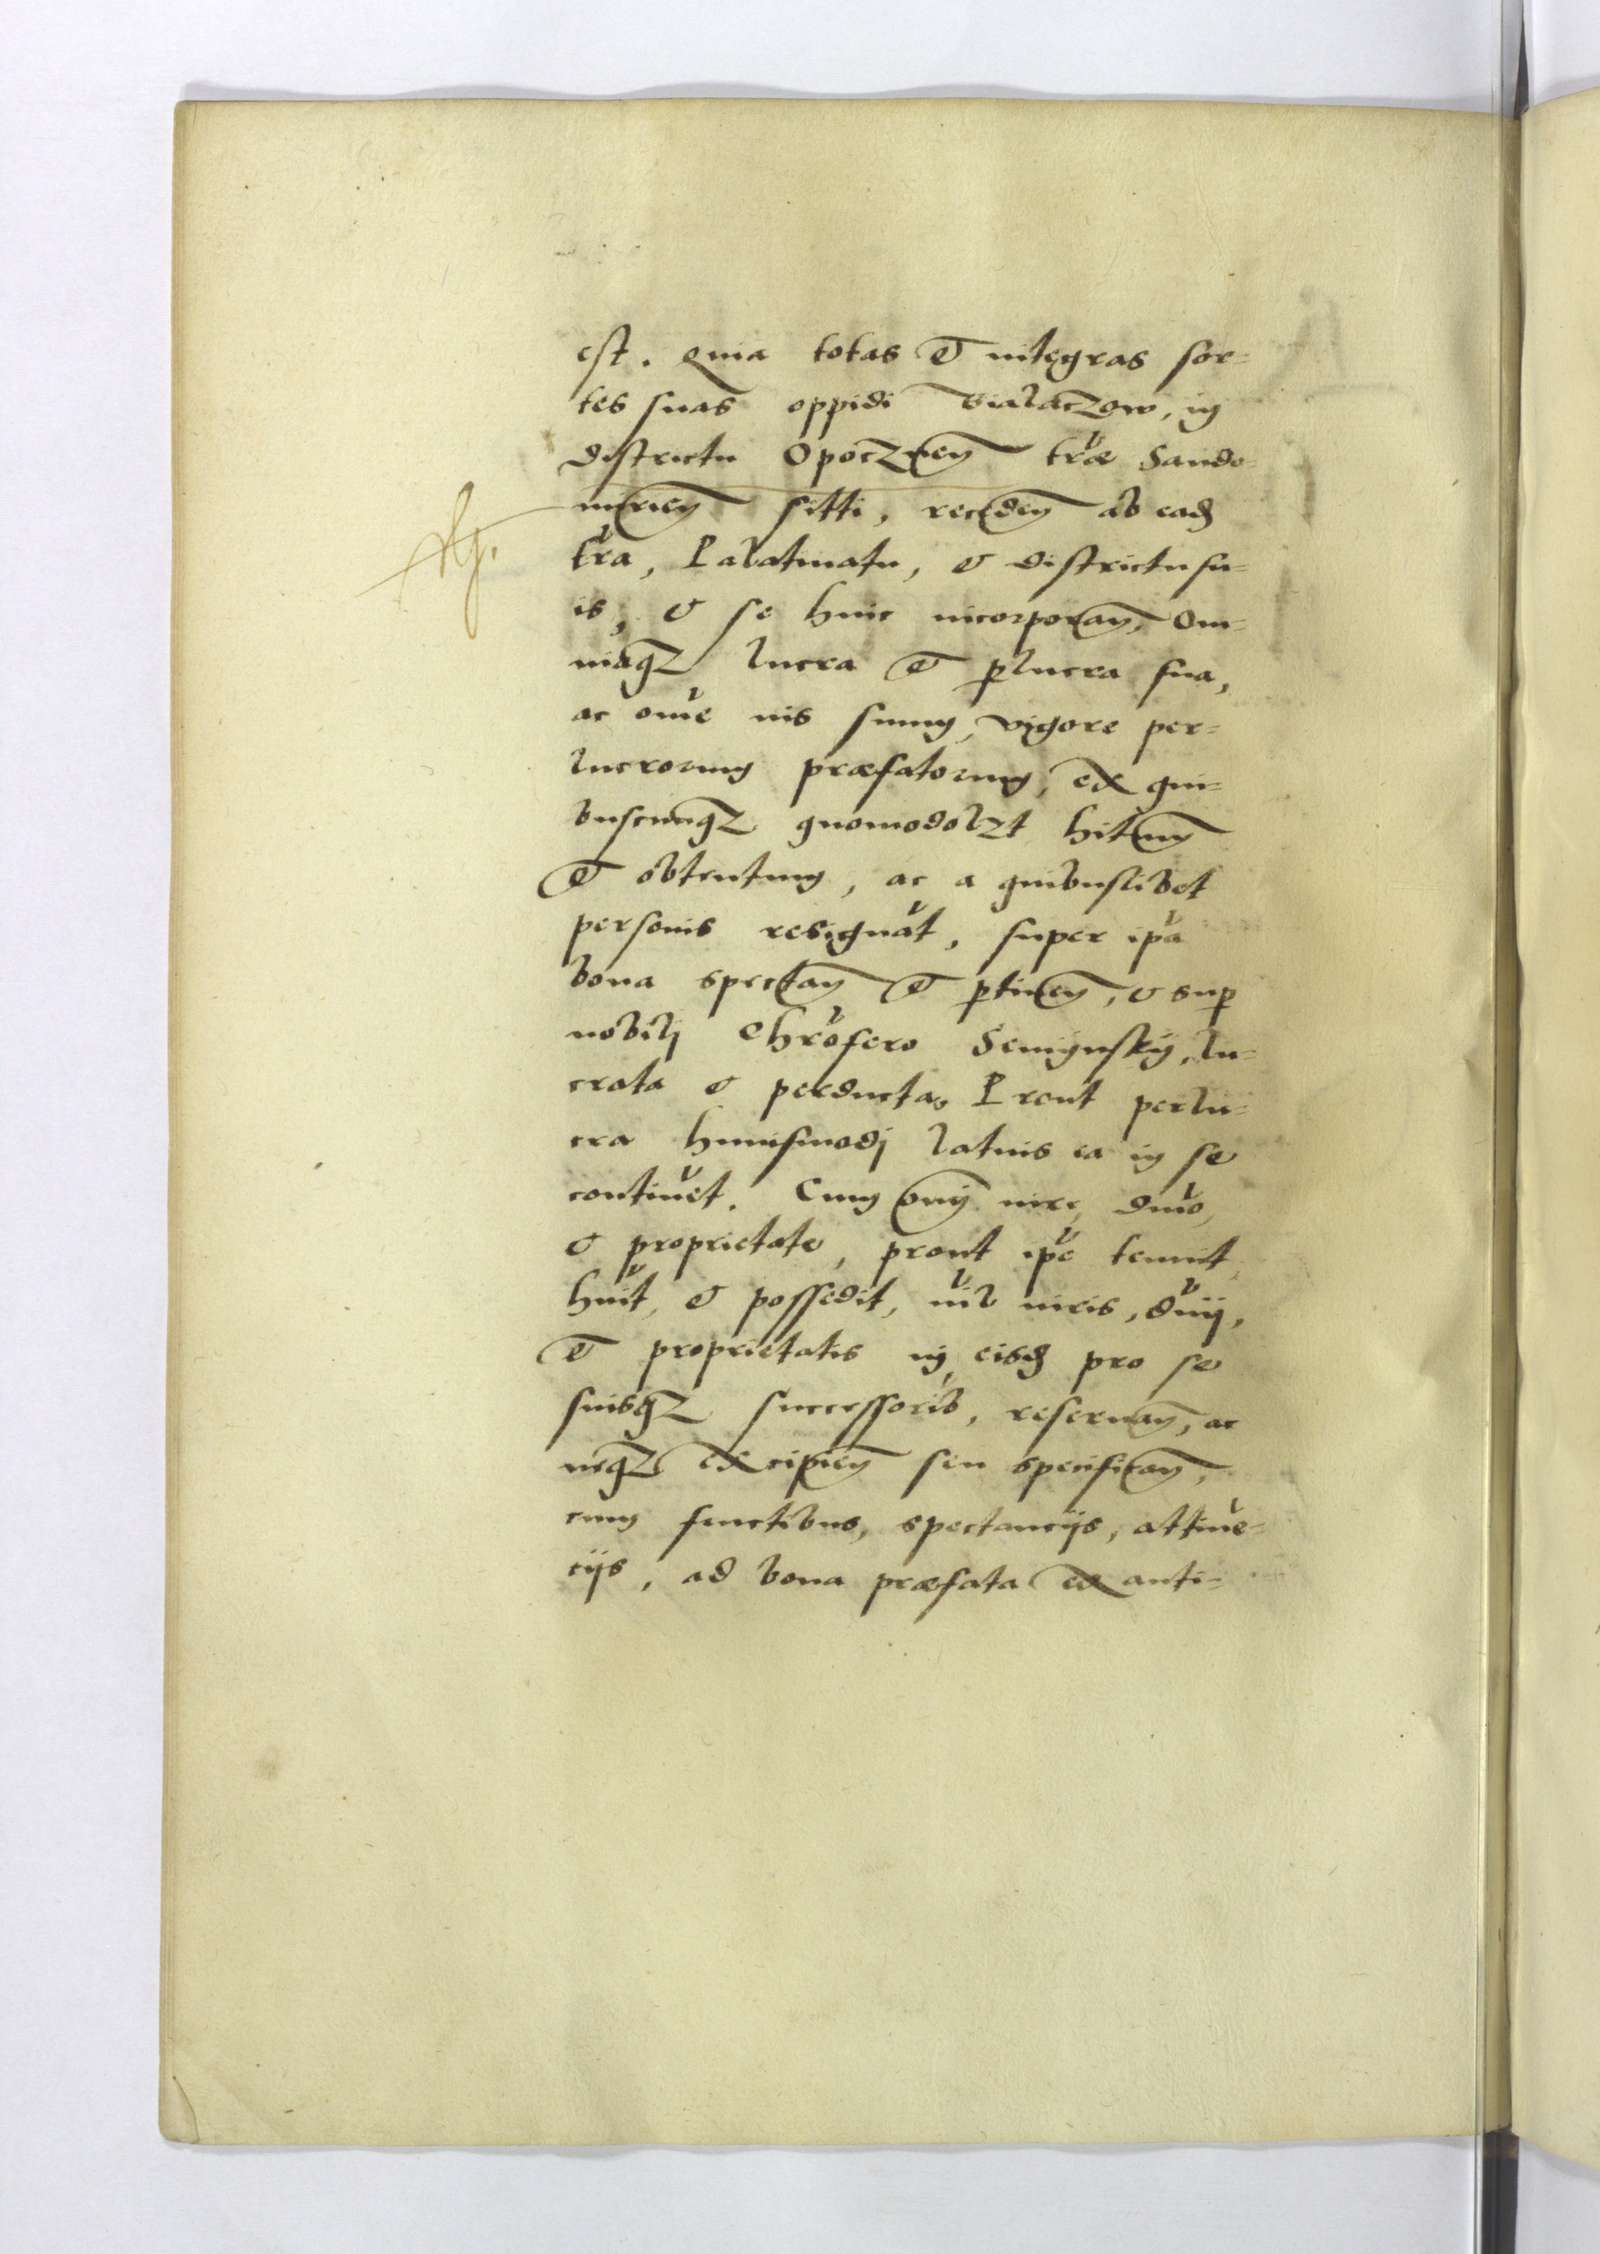 est. Quia totas et integras sor-
tes suas oppidi Bialaczow, in
districtu Opocznen̄ tr̄æ Sando-
mirien̄ sitti, receden̄ ab ead̄
tr̄a, Palatinatu, et districtu su-
is, et se huic incorporan̄, Om-
niaq₃ lucra et ꝑlucra sua,
ac om̄e ius suum, vigore per-
lucrorum præfatorum, ex qui-
buscunq₃ quomodolzt hitum
et obtentum, ac a quibuslibet
personis resignāt, super ip̄a
bona spectan̄ et ꝑtinen̄, et suꝑ
nobili Chrōfero Semignsky, lu-
crata et perducta, Prout perlu-
cra huiusmodi latius ea in se
contin̄et. Cum om̄i iure, dn̄io,
et proprietate, prout ip̄e tenuit
hūit, et possedit, nīl iuris, dn̄ij,
et proprietatis in eisd̄ pro se
suisq₃ successorib, reseruan̄, ac
neq₃ excipien̄ seu specifican̄,
cum fructibus, spectancijs, attine-
cijs, ad bona præfata ex anti-